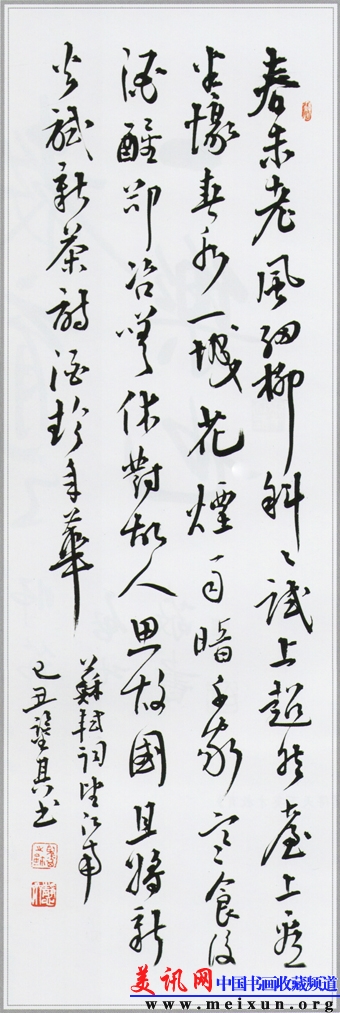 春未老風細柳斜〻試上超然臺上看
半壕春水一城花煙雨暗千家寒食後
酒醒卻咨嗟休對故人思故國且將新
火試新茶詩酒趁年華
蘇軾詞望江南
己丑其书
美讯网 中国书画收藏频道
www.meixun.org